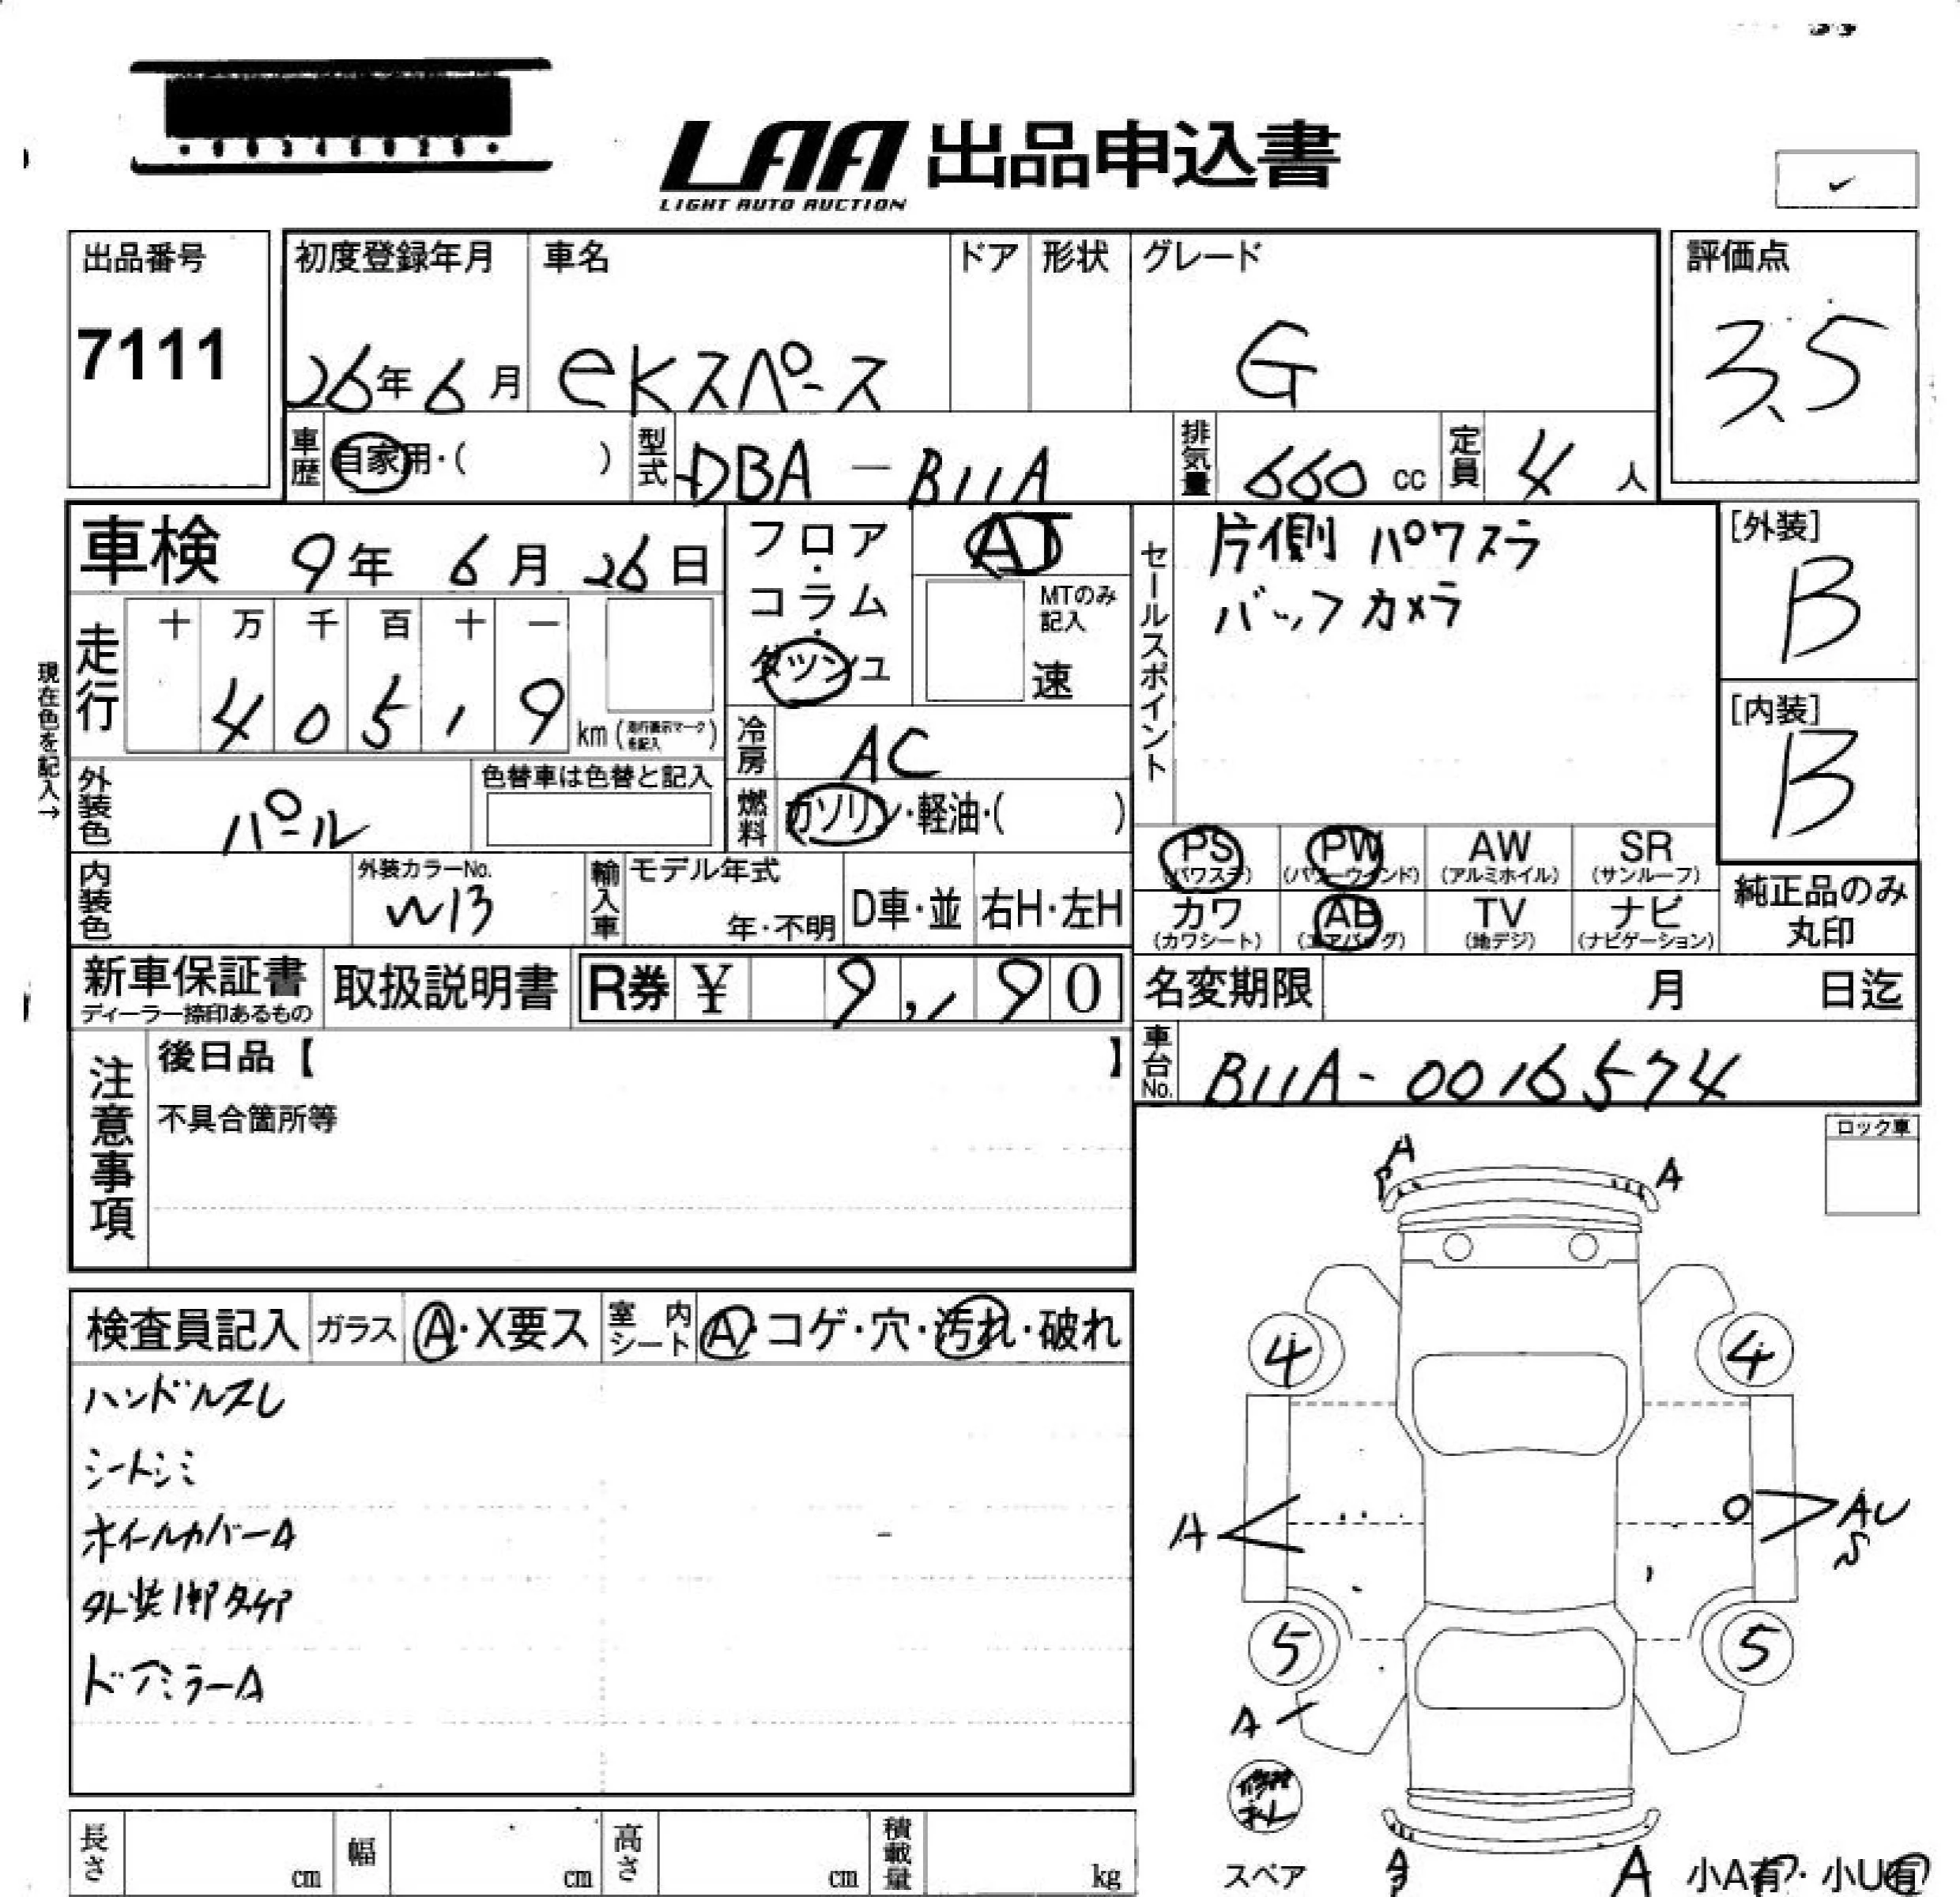 LAA 出品申込書
LIGHT AUTO AUCTION
出品番号
7111
初度登録年月
26年6月
車名
eKスペース
ドア
形状
グレード
G
評価点
3.5
車歴
自家用・( )
型式
DBA-B11A
排気量
660 cc
定員
4人
車検 9年 6月 26日
走行
十 万 千 百 十 一
4 0 5 1 9 km (走行表示マークを記入)
現在色を記入→
外装色
パール
色替車は色替と記入
内装色
外装カラーNo.
W13
輸入車
モデル年式
年・不明
D車・並
右H・左H
フロア・コラム・ダッシュ
AT
MTのみ記入
速
冷房
AC
燃料
ガソリン・軽油・( )
セールスポイント
片側パワスラ
バックカメラ
[外装]
B
[内装]
B
PS (パワステ)
PW (パワーウインド)
AW (アルミホイル)
SR (サンルーフ)
カワ (カワシート)
AB (エアバッグ)
TV (地デジ)
ナビ (ナビゲーション)
純正品のみ丸印
新車保証書
ディーラー捺印あるもの
取扱説明書
R券 ¥ 9, 90
名変期限 月 日迄
車台No.
B11A-0016574
注意事項
後日品【 】
不具合箇所等
ロック車
検査員記入
ガラス
A・X要ス
室内シート
A・コゲ・穴・汚れ・破れ
ハンドルスレ
シートシミ
ホイールカバーA
ドアミラーA
A
A
4
4
A
AU
S
5
5
A
修理
スペア
A
A
小A有・小U有
長さ cm
幅 cm
高さ cm
積載量 kg